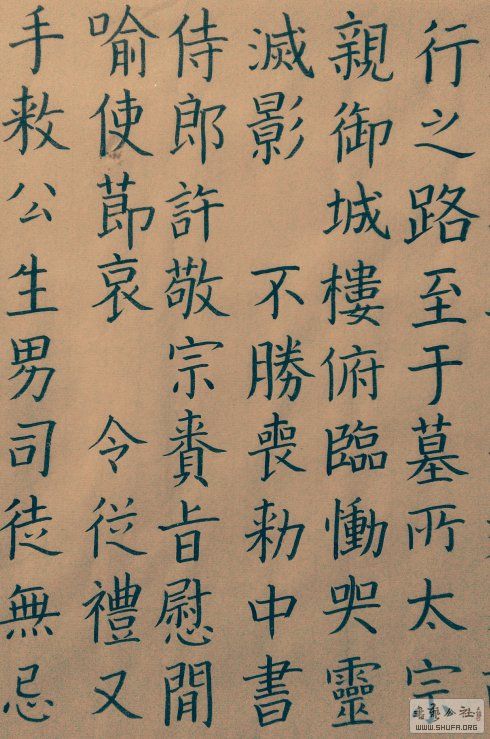 行之路至于墓所太宗
親御城樓俯臨慟哭靈
滅影 不勝喪勑中書
侍郎許敬宗賷旨慰間
喻使莭哀 令從禮又
手敕公生男司徒無忌
書法公社
WWW.SHUFA.ORG